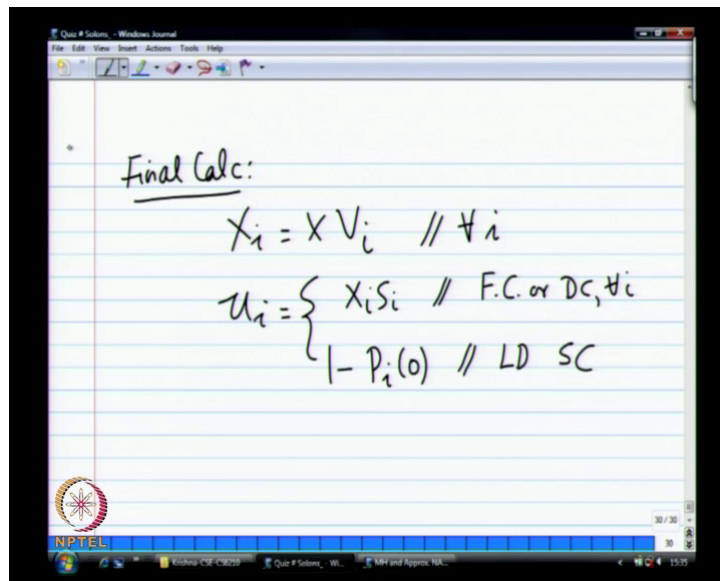 Quiz # Solons_ - Windows Journal
File Edit View Insert Actions Tools Help
Final Calc:
Xᵢ = X Vᵢ // ∀i
Uᵢ = { XᵢSᵢ // F.C. or DC, ∀i
1 - Pᵢ(0) // LD SC
30 / 30
30
NPTEL
Krishna-CSE-CS6210
Quiz # Solons_ - Wi...
MH and Approx. NA...
15:35